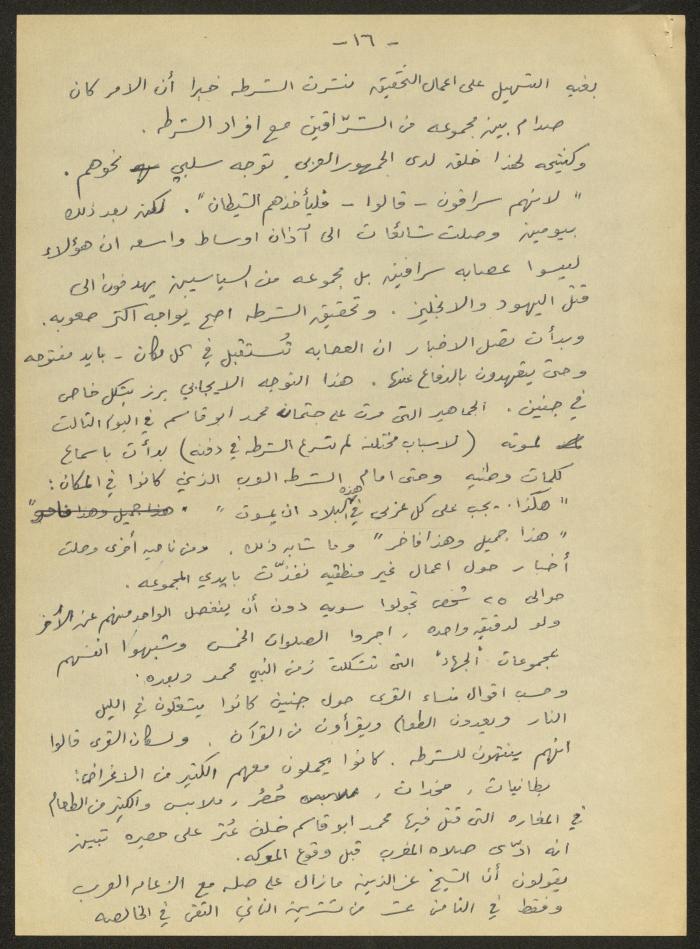 - ١٦ -
بغيه التسهيل على اعمال التحقيق نشرت الشرطه خبرا أن الامر كان
صدام بين مجموعه من السرّاقين مع افراد الشرطه .
وكنتيجه لهذا خلق لدى الجمهور العربي توجه سلبي نحوهم .
" لانهم سراقون - قالوا - فليأخذهم الشيطان " . لكن بعد ذلك
بيومين وصلت شائعات الى آذان اوساط واسعه ان هؤلاء
ليسوا عصابه سراقين بل مجموعه من السياسيين يهدفون الى
قتل اليهود والانجليز . وتحقيق الشرطه اصبح يواجه اكثر صعوبه .
وبدأت تصل الاخبار ان العصابه تُستقبل في كل مكان - بايد مفتوحه
وحتى يتعهدون بالدفاع عنها . هذا التوجه الايجابي برز بشكل خاص
في جنين . الجماهير التي مرت على جثمان محمد ابو قاسم في اليوم الثالث
لموته ( لاسباب مختلفه لم تسرع الشرطه في دفنه ) بدأت باسماع
كلمات وطنيه وحتى امام الشرطه العرب الذين كانوا في المكان :
" هكذا . يجب على كل عربي في هذه البلاد ان يموت " . هذا جميل وهذا فاخر "
" هذا جميل وهذا فاخر " وما شابه ذلك . ومن ناحيه أخرى وصلت
أخبار حول اعمال غير منطقيه نفذّت بايدي المجموعه .
حوالي ٢٥ شخص تجولوا سويه دون أن ينفصل الواحد منهم عن الآخر
ولو لدقيقه واحده , اجروا الصلوات الخمس وشبهوا انفسهم
بمجموعات " الجهاد " التي تشكلت زمن النبي محمد وبعده .
وحسب اقوال نساء القرى حول جنين كانوا يشعلون في الليل
النار ويعدون الطعام ويقرأون من القرآن . ولسكان القرى قالوا
انهم ينتمون للشرطه . كانوا يحملون معهم الكثير من الاغراض :
بطانيات , مخدات , حُصُر , ملابس والكثير من الطعام
في المغاره التي قتل فيها محمد ابو قاسم خلف عُثر على حصيره تبين
انه ادّى صلاه المغرب قبل وقوع المعركه .
يقولون أن الشيخ عز الدين ما زال على صله مع الزعامه العرب
وفقط في الثامن عشر من تشرين الثاني التقى في الخالصه